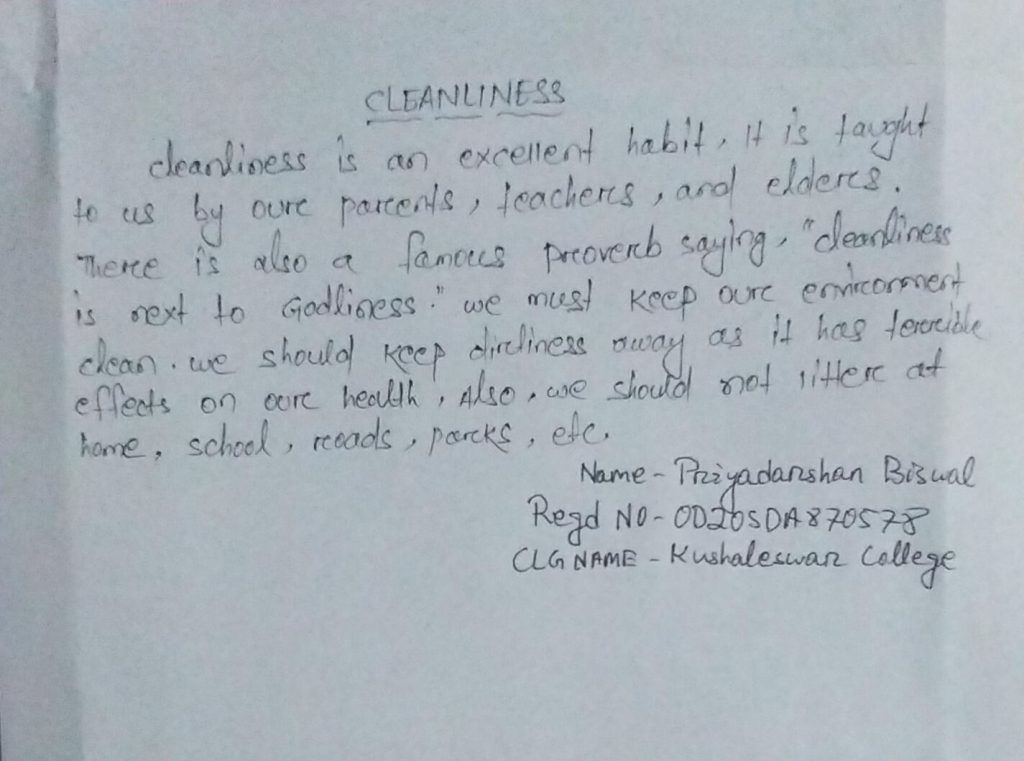 CLEANLINESS
cleanliness is an excellent habit, It is taught
to us by our parents, teachers, and elders.
There is also a famous proverb saying, "cleanliness
is next to Godliness." we must keep our environment
clean. we should keep dirtiness away as it has terrible
effects on our health, Also, we should not litter at
home, school, roads, parks, etc.
Name - Priyadarshan Biswal
Regd NO - OD20SDA870578
CLG NAME - Kushaleswar College